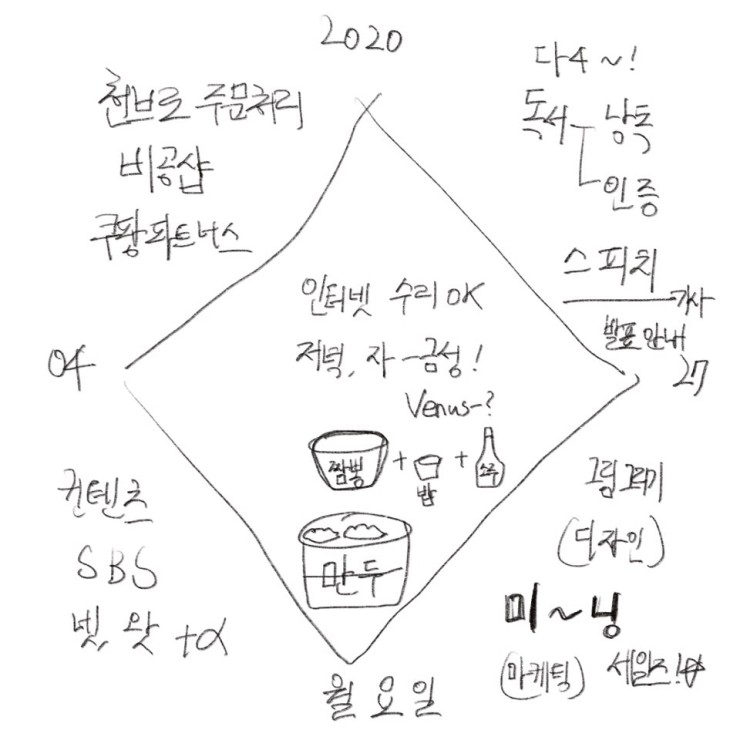 2020
천브로 주문처리
비공샵
쿠팡파트너스
다4~!
독서 낭독
인증
스피치
기사
발표 안내
04
27
인터넷 수리OK
저녁, 자~금성!
Venus~?
짬뽕 + 밥 + 소주
만두
컨텐츠
SBS
넷, 왓 +α
그림그리기
(디자인)
미~닝
(마케팅) 세일즈!
월요일